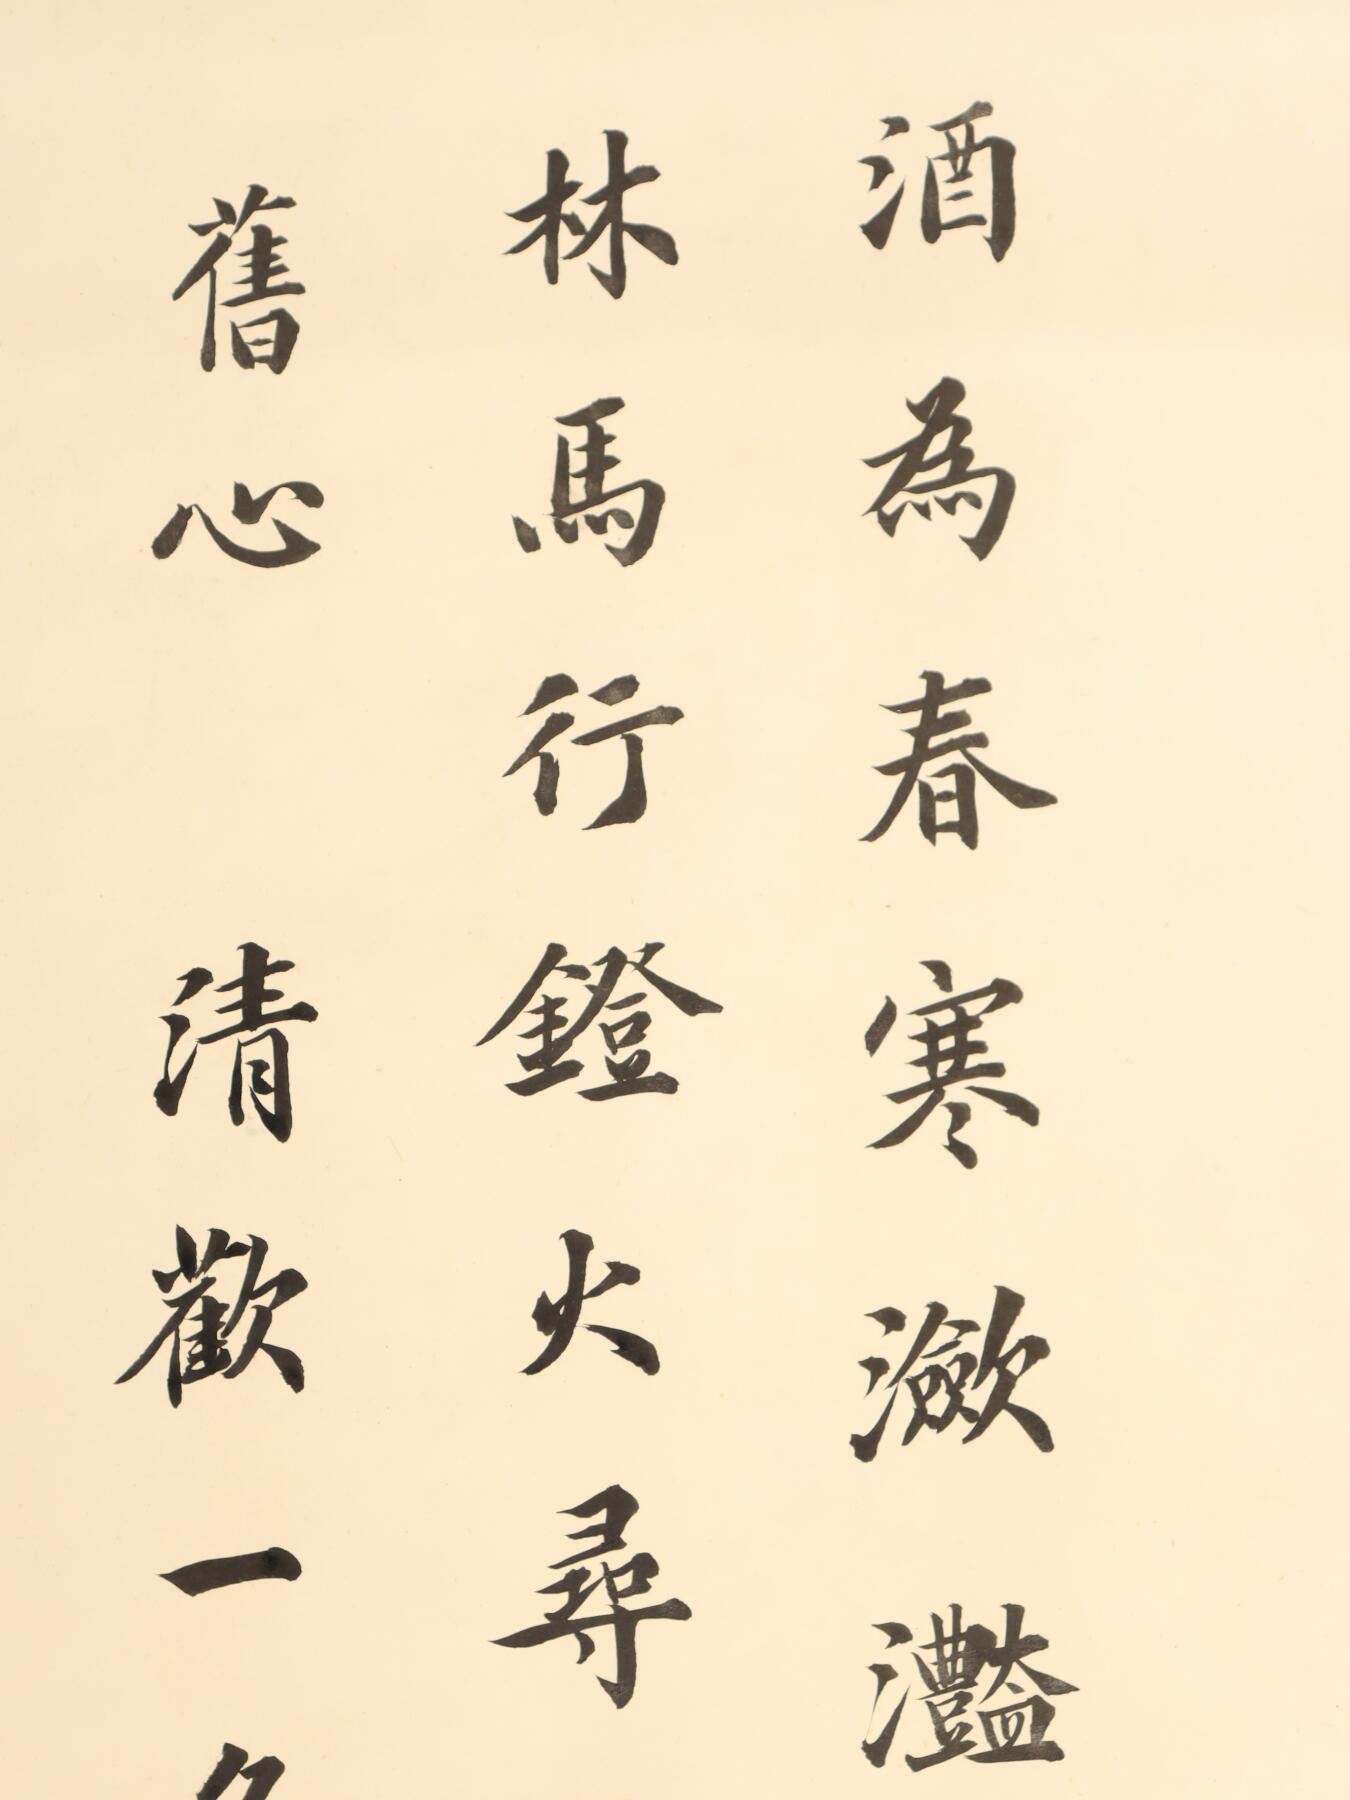 酒為春寒瀲灩
林馬行鐙火尋
舊心 清歡一